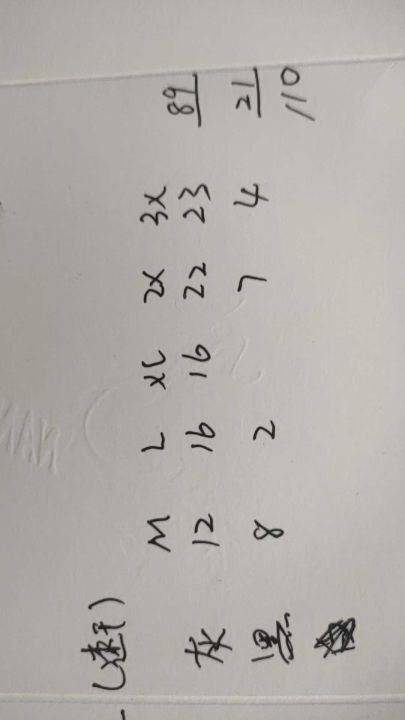 (速干)
M L XL 2X 3X
灰 12 16 16 22 23 89
黑 8 2 7 4 21
110